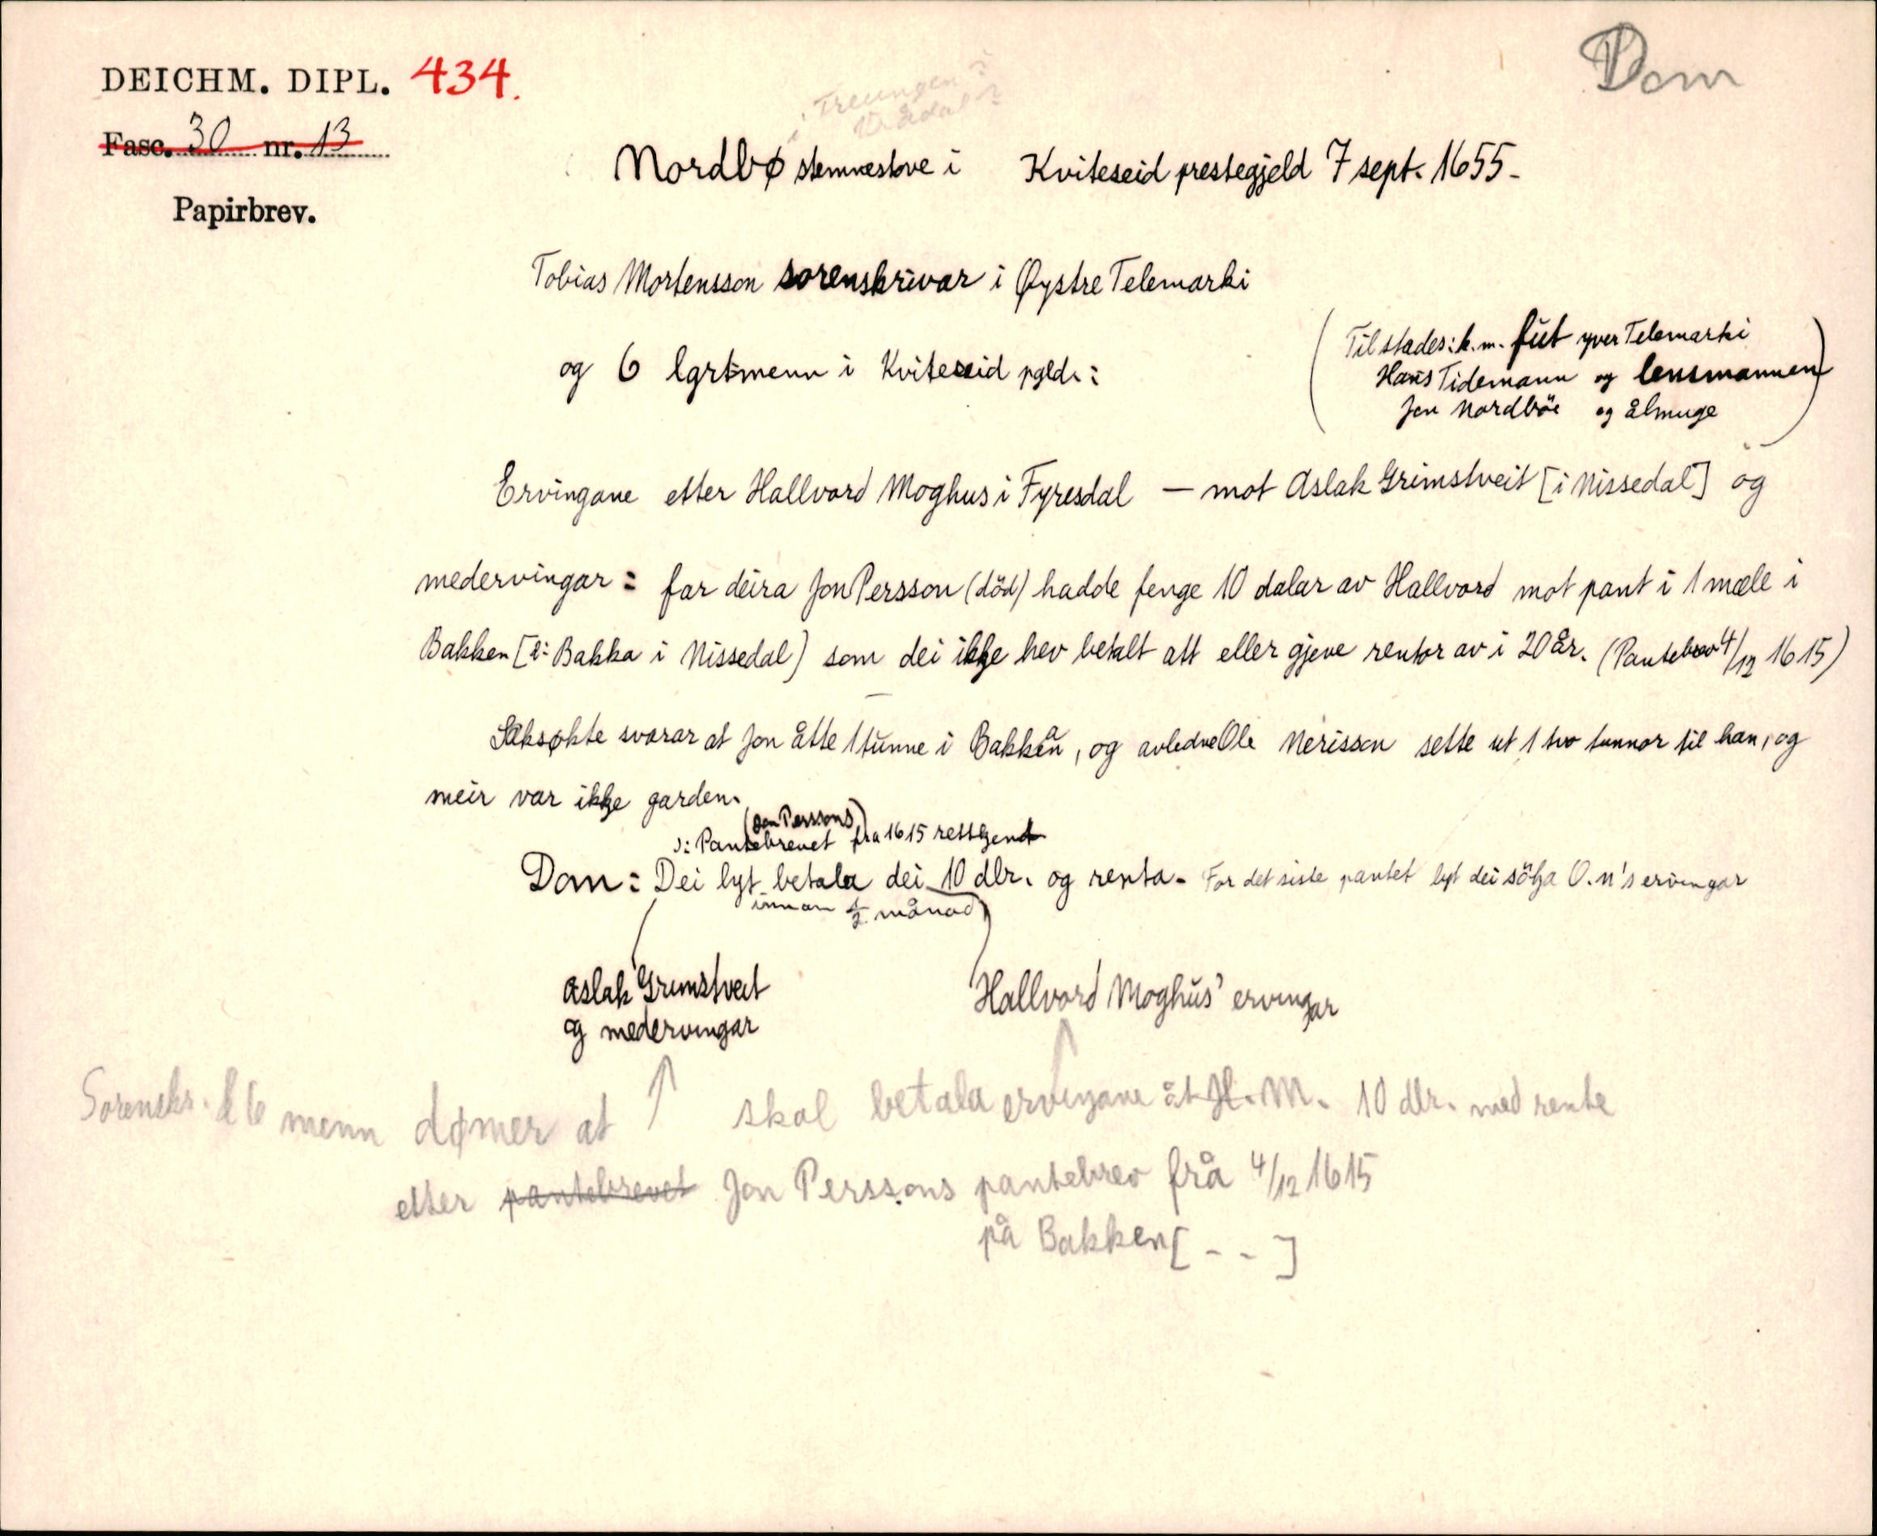 DEICHM. DIPL. 434.
Dom
Fasc. 30 nr. 13
Treungen i
Vrådal?
Nordbø stemnestove i Kviteseid prestegjeld 7 sept. 1655.
Papirbrev.
Tobias Mortensson sorenskrivar i Øystre Telemarki
og 6 lgrtmenn i Kviteseid pgld.:
(Til stades: k.m. fut yver Telemarki
Hans Tidemann og lensmannen
Jon Nordbøe og ålmuge)
Ervingane etter Hallvord Moghus i Fyresdal — mot Aslak Grimstveit [i Nissedal] og
medervingar: far deira Jon Persson (död) hadde fenge 10 dalar av Hallvord mot pant i 1 mæle i
Bakken [ɔ: Bakka i Nissedal] som dei ikkje hev betalt att eller gjeve rentor av i 20 år. (Pantebrev 4/12 1615)
Saksøkte svarar at Jon åtte 1 tunne i Bakken, og avledne Ole Nerisson sette ut 1 tvo tunnor til han, og
meir var ikkje garden.
(Jon Perssons)
ɔ: Pantebrevet fra 1615 rettkjent
Dom: Dei lyt betala dei 10 dlr. og renta. For det siste pantet lyt dei sökja O.N's ervingar
innan 1/2 månad
Aslak Grimstveit
og medervingar
Hallvord Moghus' ervingar
Sorenskr. & 6 menn dømer at ↑ skal betala ervingane åt H.M. 10 dlr. med rente
etter pantebrevet Jon Perssons pantebrev frå 4/12 1615
på Bakken [ - - ]